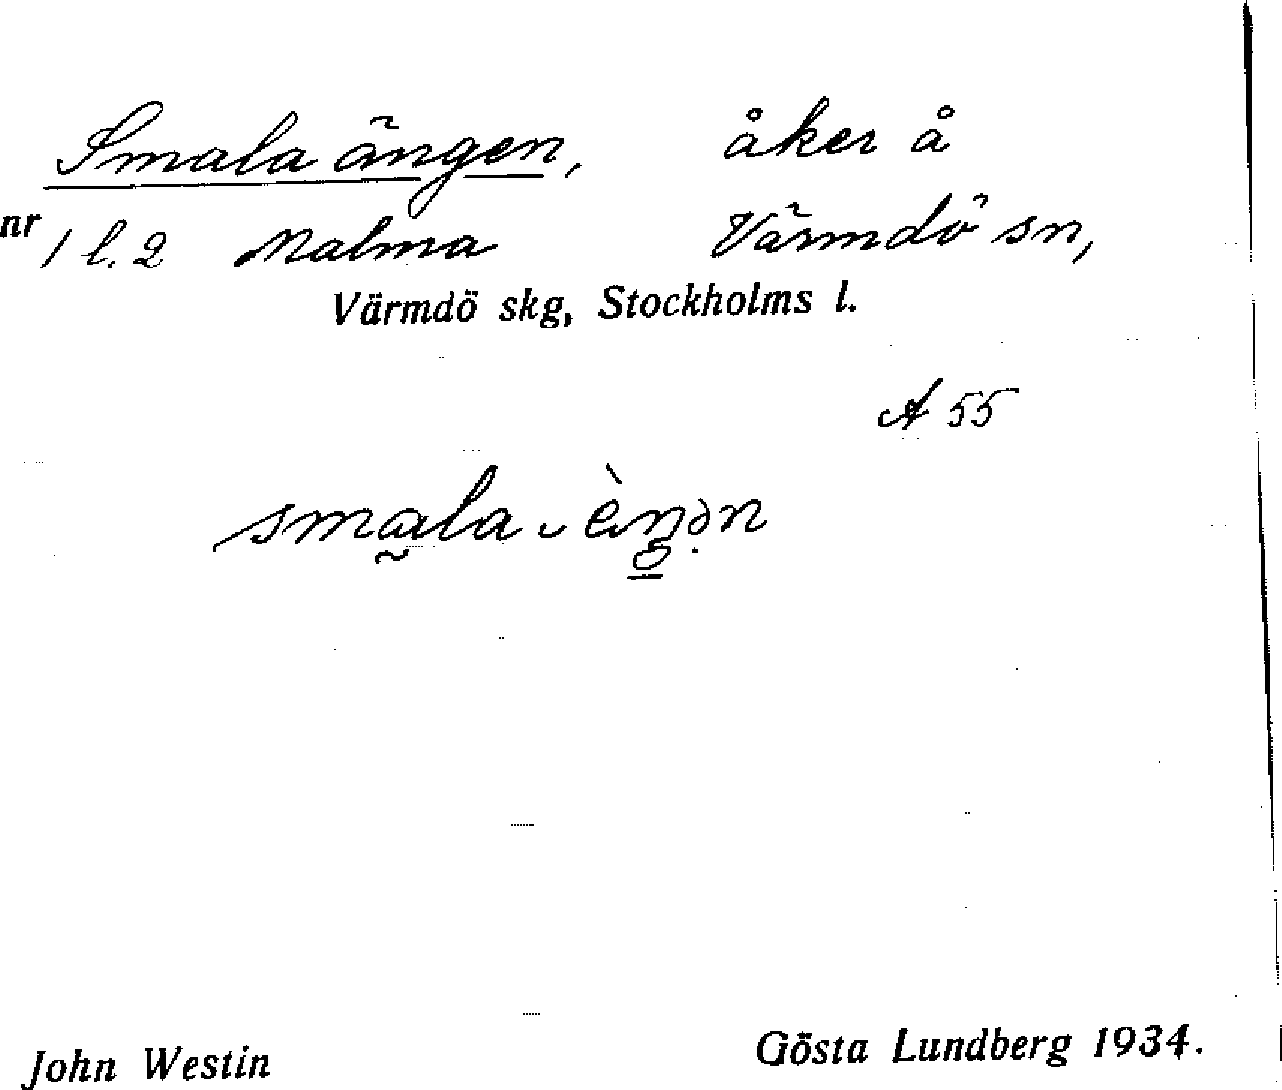 Smala ängen, åker å
nr 1 l. 2 Malma Värmdö sn,
Värmdö skg, Stockholms l.
A 55
smala - èŋən
John Westin Gösta Lundberg 1934.